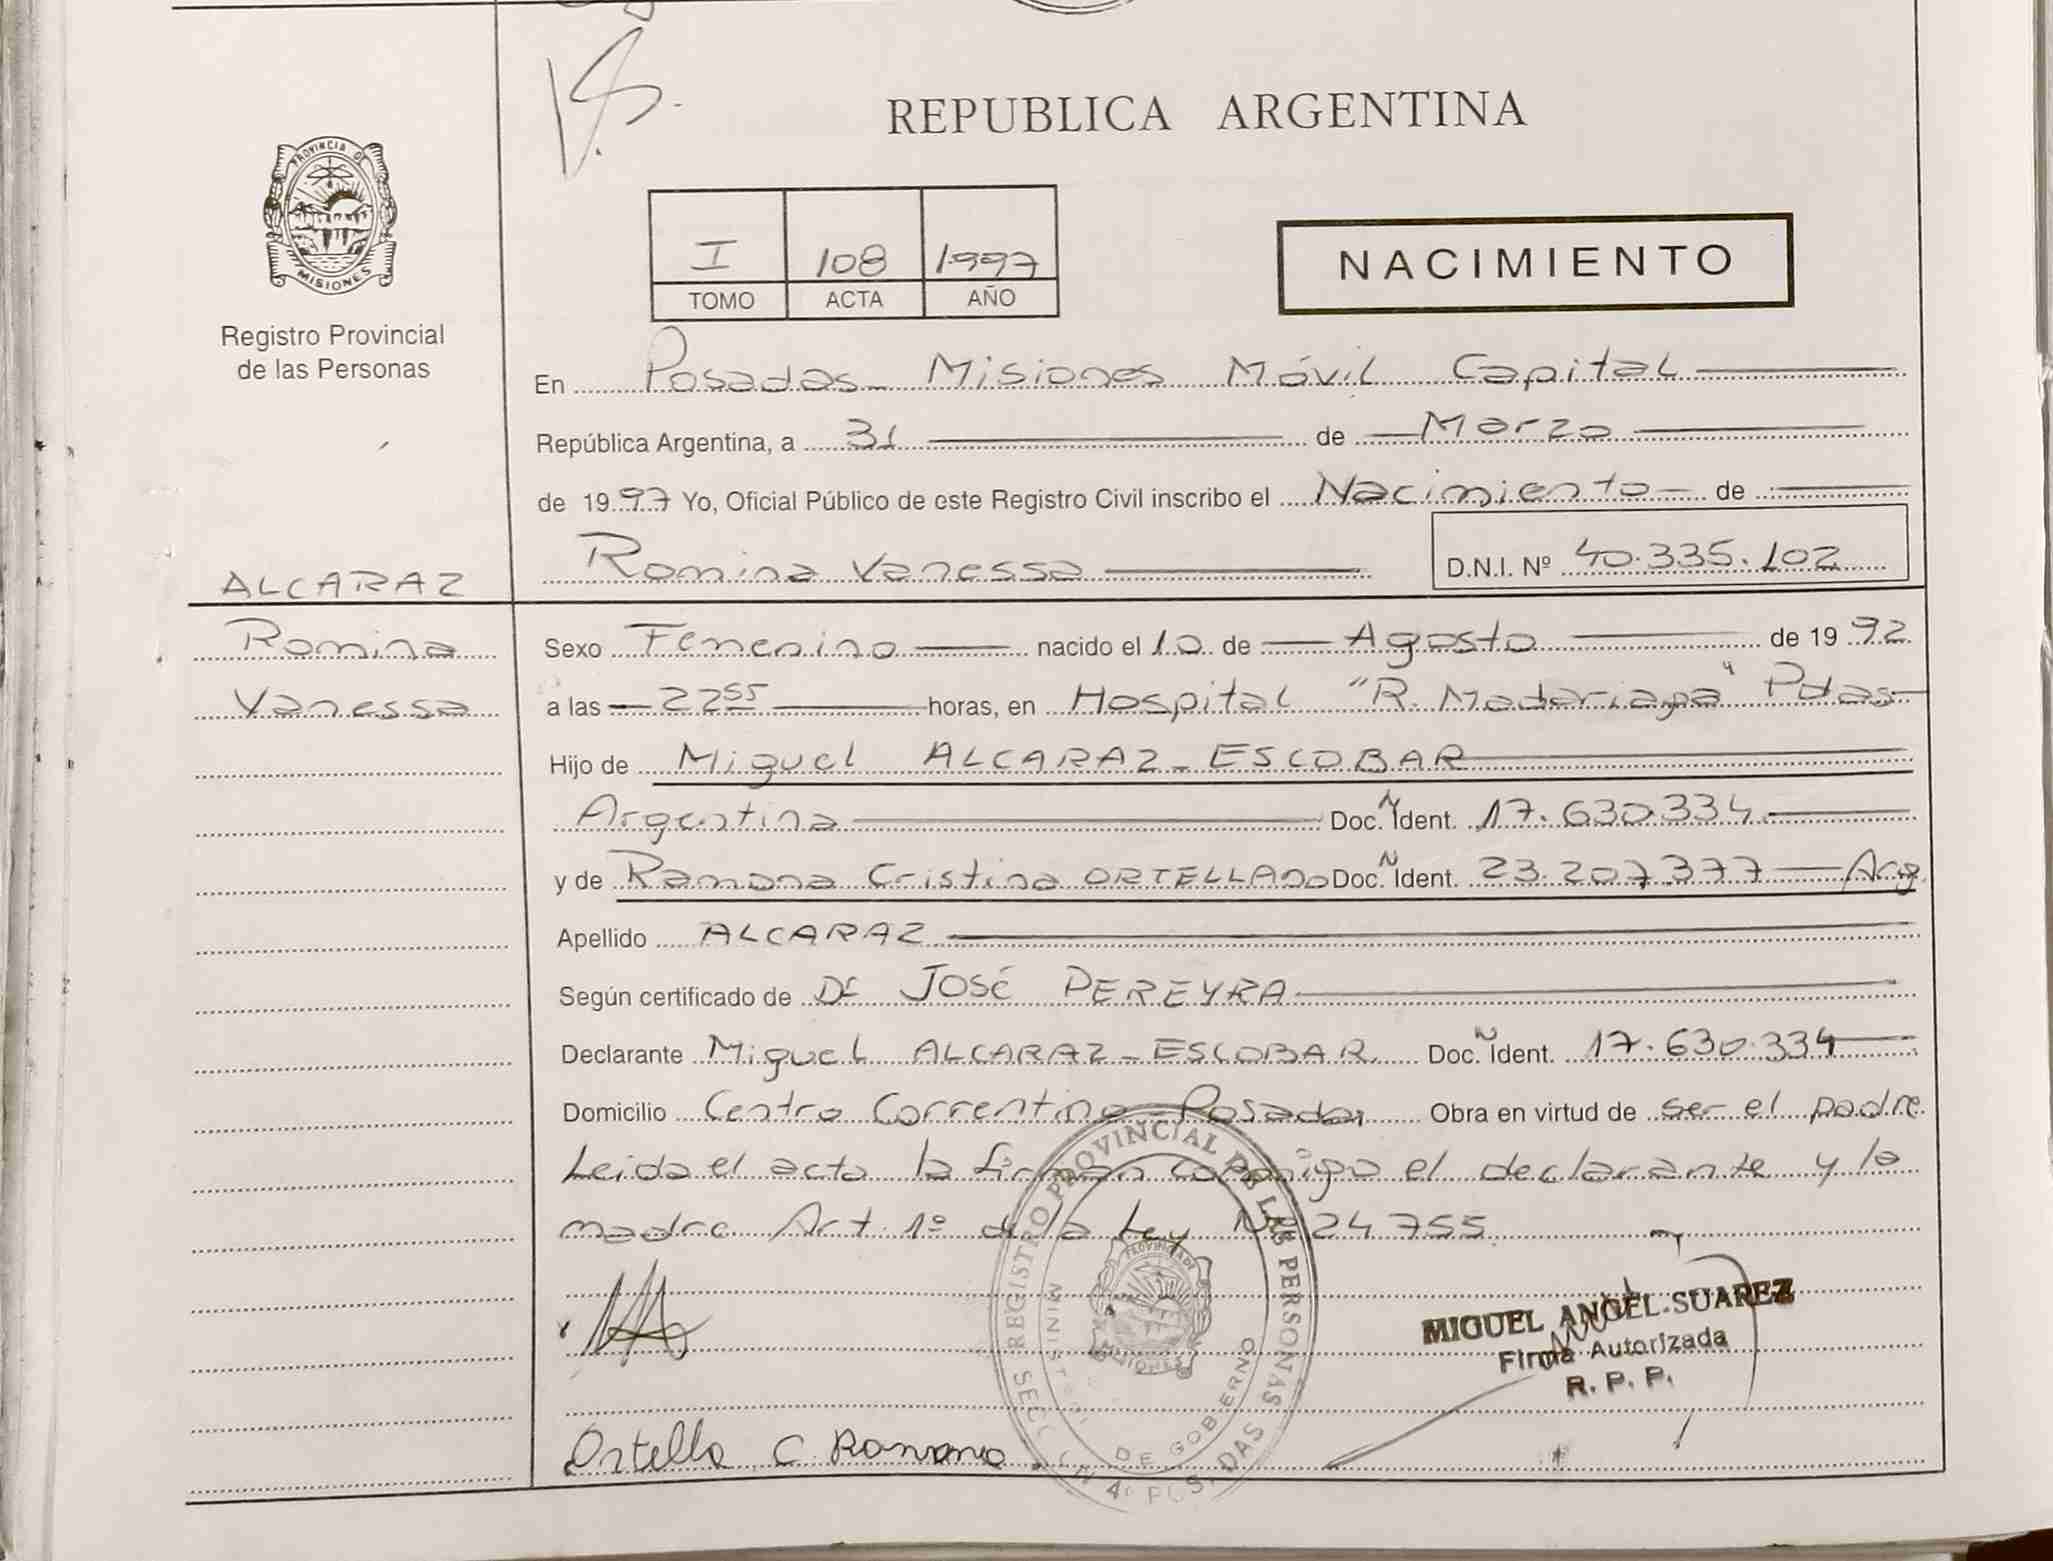 REPUBLICA ARGENTINA
PROVINCIA DE
MISIONES
Registro Provincial
de las Personas
I 108 1997
TOMO ACTA AÑO
NACIMIENTO
En Posadas - Misiones Móvil Capital
República Argentina, a 31 de Marzo
de 1997 Yo, Oficial Público de este Registro Civil inscribo el Nacimiento de
Romina Vanessa D.N.I. Nº 40.335.102
ALCARAZ
Romina
Vanessa
Sexo Femenino nacido el 10 de Agosto de 1992
a las 22 55 horas, en Hospital "R. Madariaga" Pdas
Hijo de Miguel ALCARAZ - ESCOBAR
Argentina Doc. N Ident. 17.630.334
y de Ramona Cristina ORTELLADO Doc. N Ident. 23.207.377 Arg.
Apellido ALCARAZ
Según certificado de Dr JOSÉ PEREYRA
Declarante Miguel ALCARAZ - ESCOBAR Doc. N Ident. 17.630.334
Domicilio Centro Correntino - Posadas Obra en virtud de ser el padre
Leida el acta la firman conmigo el declarante y la
madre Art. 1º de la Ley Nº 24.755
REGISTRO PROVINCIAL DE LAS PERSONAS
MINISTERIO DE GOBIERNO
PROVINCIA DE
MISIONES
MIGUEL ANGEL SUAREZ
Firma Autorizada
R. P. P.
Ortella C Ramona